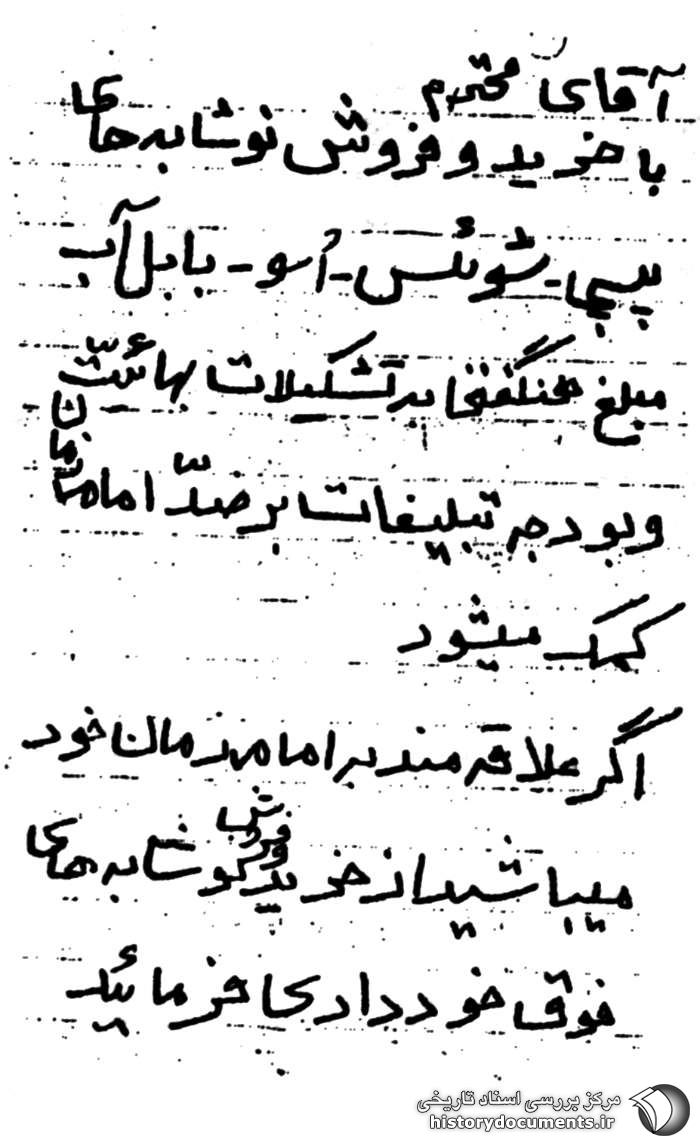 آقای محترم
با خرید و فروش نوشابه های
پپسی - شوئپس - اُسو - بابل آب
مبلغ هنگفتی به تشکیلات بهائیّت
و بودجه تبلیغات بر ضدّ امام زمان
کمک میشود
اگر علاقه مند به امام زمان خود
میباشید از خرید و فروش نوشابه های
فوق خودداری فرمائید
مرکز بررسی اسناد تاریخی
historydocuments.ir